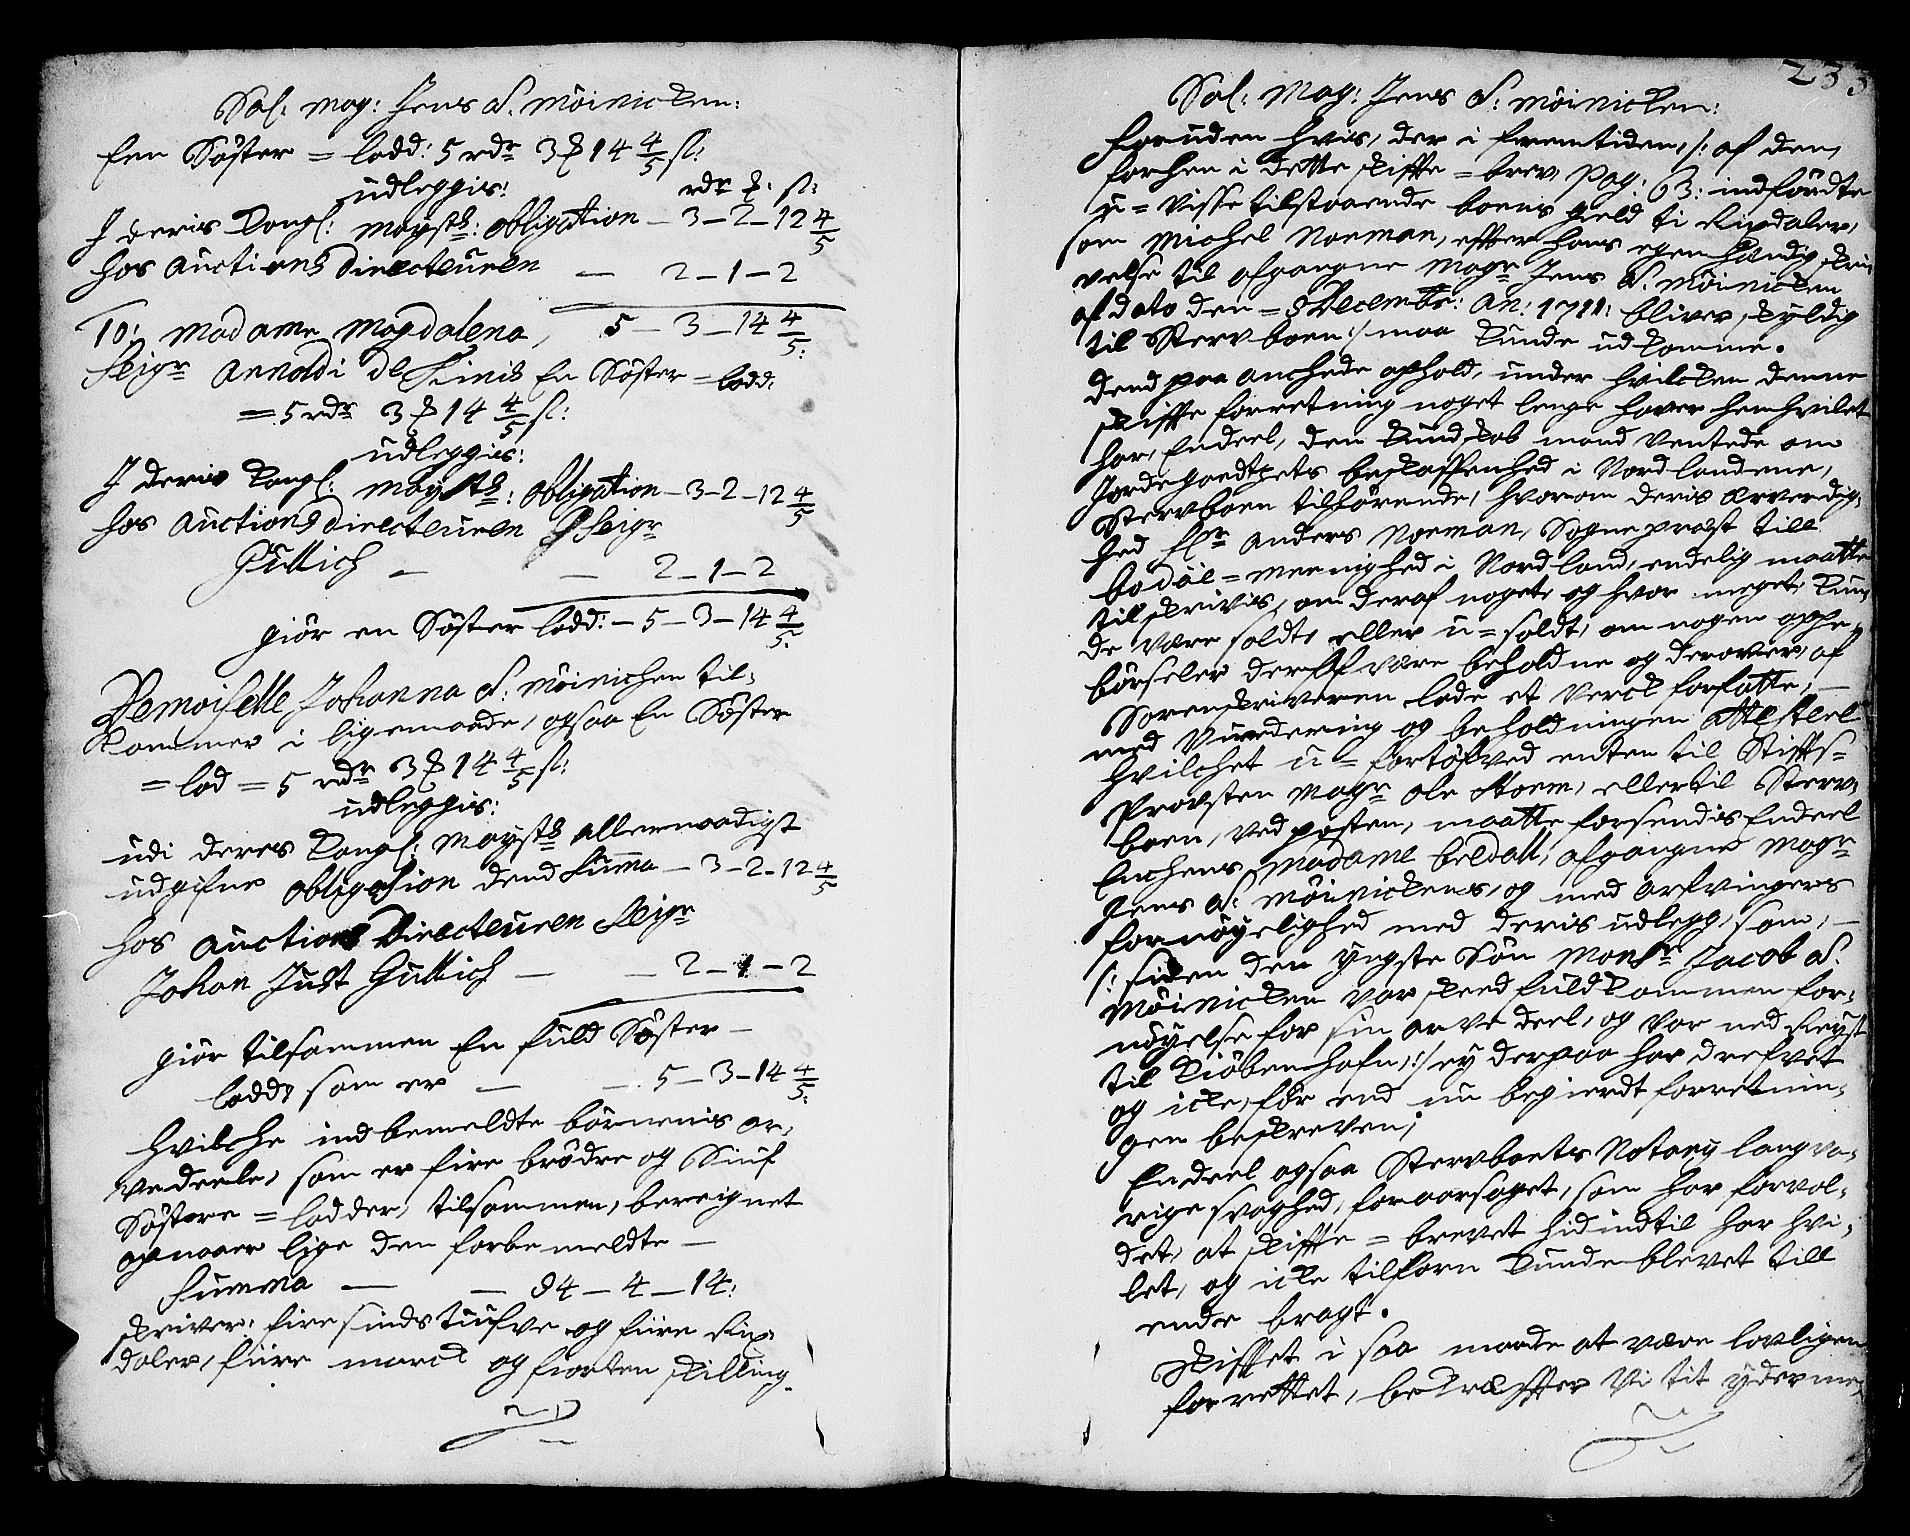 Sal: Mag: Jens S. Möinicken:
Een Söster = lodd: 5 rdr 3 ꝥ 14 4/5 sl:
udleggis:
rdr ꝥ: sl:
J deris Kongl: Maysts: obligation - 3 - 2 - 12 4/5
hos Auctions Directeuren - 2 - 1 - 2
5 - 3 - 14 4/5:
10: Madame Magdalena,
Seigr Arnoldi de Finis En Söster = lodd:
= 5 rdr 3 ꝥ 14 4/5 sl:
udleggis:
J deris Kongl: Maysts: Obligation - 3 - 2 - 12 4/5
hos Auctions directeuren Seigr
Güllich - - 2 - 1 - 2
giör en Söster lodd: - 5 - 3 - 14 4/5:
Demoiselle Johanna S: Möinichen til-
kommer i ligemaade, ogsaa En Söster
= lod = 5 rdr 3 ꝥ 14 4/5 sl:
udleggis:
udi deres Kongl: Maysts allernaadigst
udgifne obligation dend Summa - 3 - 2 - 12 4/5
hos Auctions Directeuren Seigr
Johan Just Güllich - - 2 - 1 - 2
giör tilsammen En fuld Söster -
lodd, som er - - 5 - 3 - 14 4/5:
hvilche indbemeldte börnenis ar-
vedeele, som er fire brödre og Siuf
Söstere = lodder, tilsammen, beregnet
opnaaer lige den forbemeldte -
Summa - - 84 - 4 - 14:
skriver, firesindstiufve og fiire Rix-
daler, fiire marck og fiorten skilling.
233
Sal: Mag: Jens S: Möinicken:
foruden hvis, der i fremtiden, /: af den,
forhen i dette skifte = brev Pag: 63: indfördte
u = visse tilstaaende boens gield ti Rixdaler,
som Michel Norman, efter hans egenhændig skri-
velse til afgangne Magr Jens S. Möinicken
af dato den = 8 Decembr: An: 1711: bliver skyldig
til Sterv boen :/ maa kunde udkomme.
Dend paa anchede ophold, under hvilcken denne
skifte forretning noget lenge haver henhvilet
har, Endeel, den kundskab mand ventede om
Jordegoedtzets beskaffenhed i Nordlandene,
Stervboen tilhörende, hvorom deris Ærværdig-
hed Hr Anders Norman, Sogneprest till
bodöe = menighed i Nordland, endelig maatte
tilskrivis, om deraf noget, og hvor meget kun-
de være soldt, eller u = soldt, om nogen oppe-
börseler deraf være beholdne og derover, af
Sorenskriveren lade et Verck forfatte, -
med Vurdering og beholdningen Attesteret
hvilchet u = fortöfved enten til Stifts-
Provsten Magr Ole Storm, eller til Sterv-
boen, ved posten, maatte forsendis Endeel
Enchens, Madame beldall, afgangne Magr
Jens S: Möinickens, og med arfvingers
fornöyelighed med deris udlegg, som, -
/: siden den yngste Sön Monsr Jacob S.
Möinicken var skeed fuldkommen for-
nöyelse for sin arve deel, og var ned Reyst
til Kiöbenhafn, :/ ey derpaa har drefvet
og icke, för end nu begierdt forretnin-
gen beskreven;
Endeel ogsaa Stervboets Notary langva-
rige svaghed, foraarsaget, som har forvol-
det, at skifte = brevet hidindtil har hvi-
let, og icke tilforn kunde blevet till
ende bragt.
Skiftet i saa maade at være lovligen
forrettet, bekræfter Vi tit ydermee